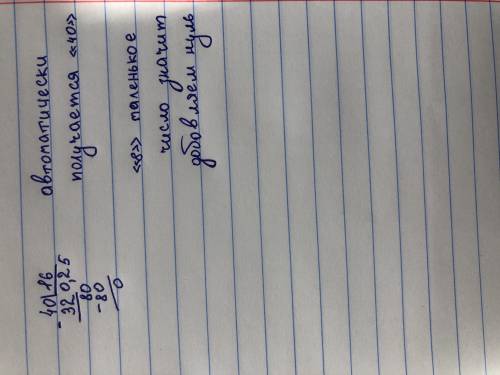 40|16 автоматически
-32 0,25 получается «40»
80
-80 «8» маленькое
0 число значит
добавляем нуль